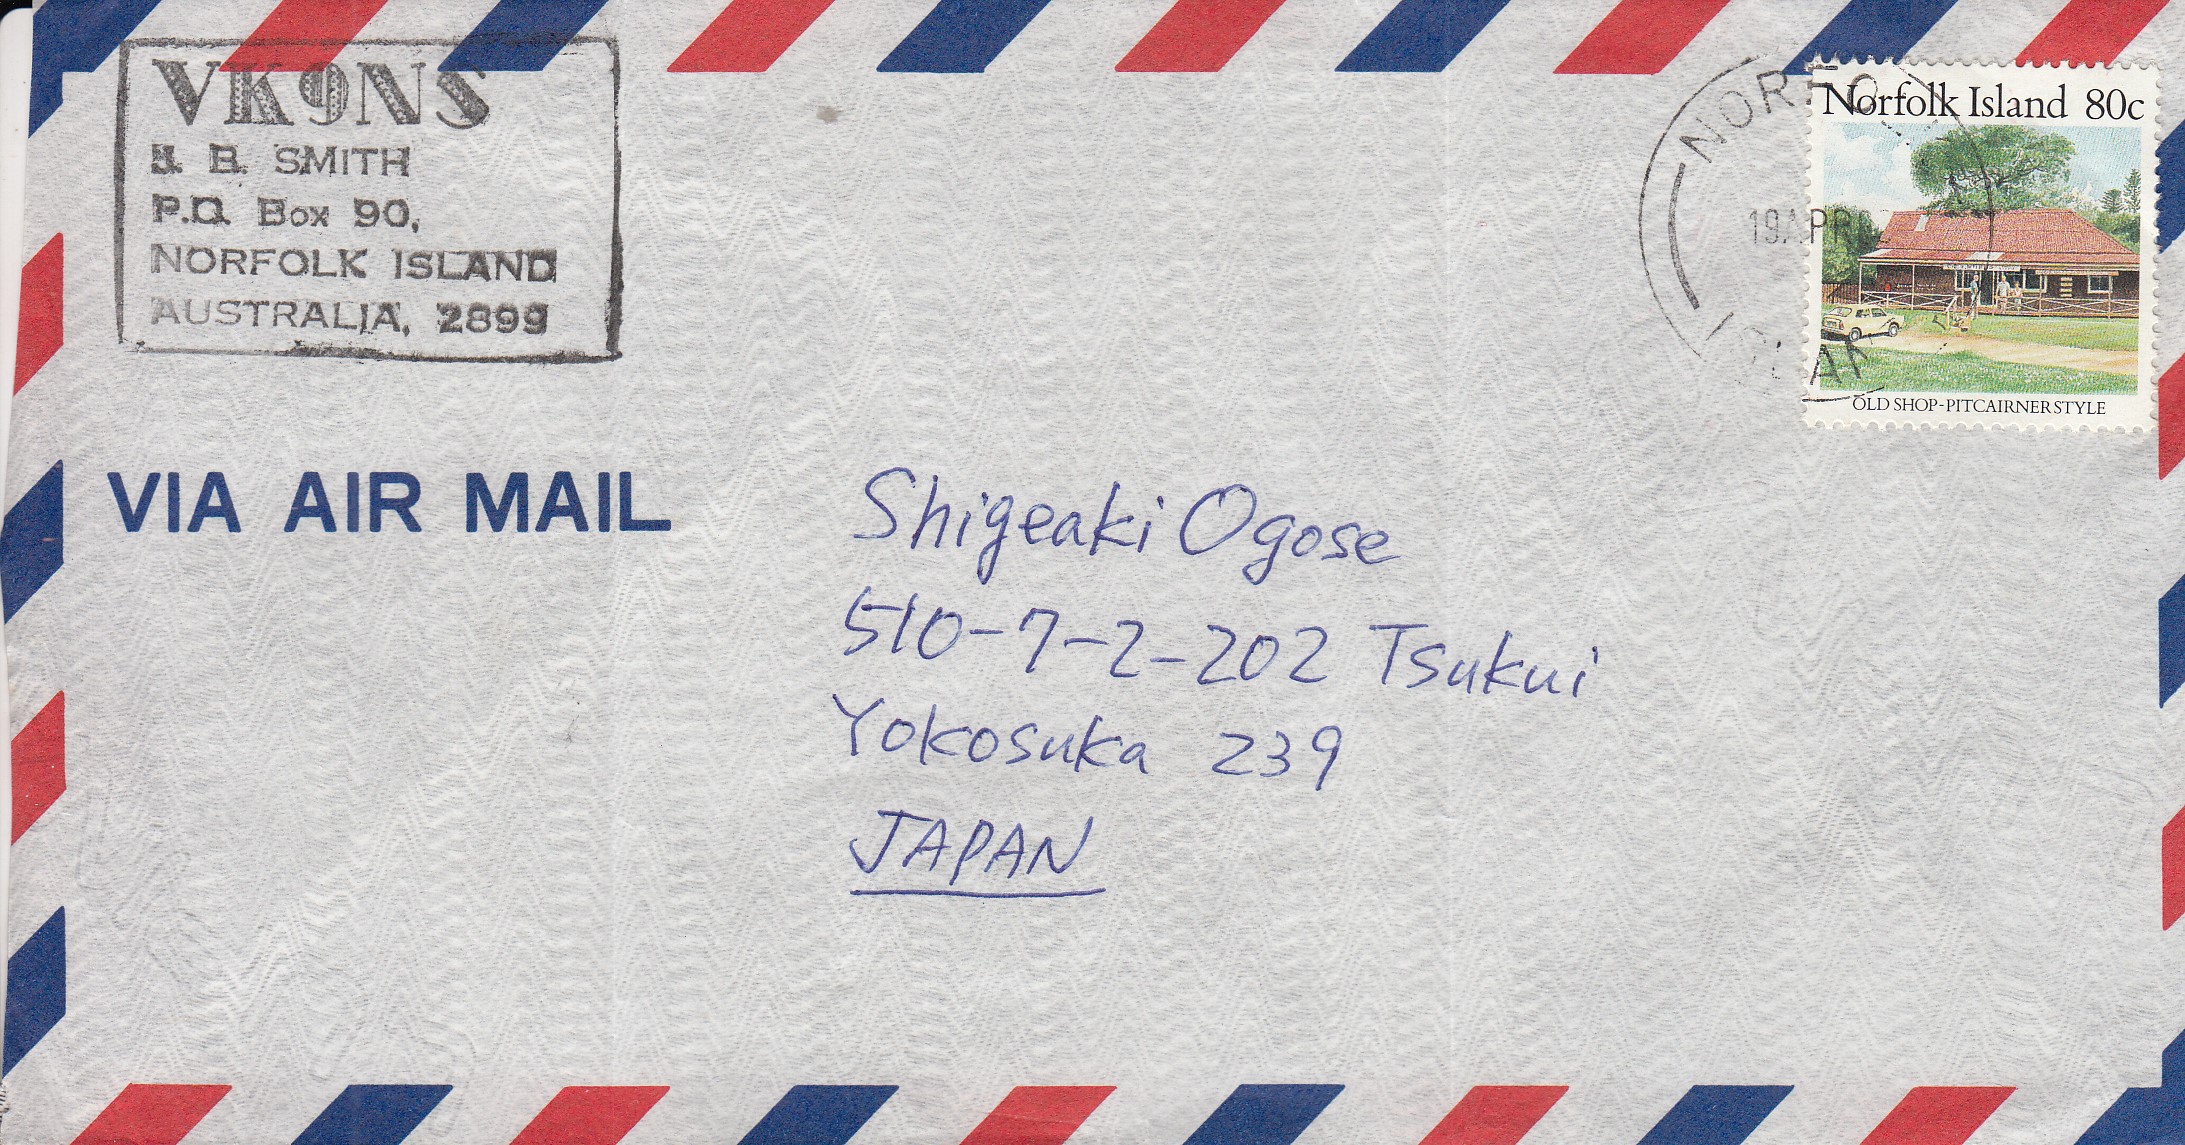 VK9NS
J. B. SMITH
P.O. Box 90,
NORFOLK ISLAND
AUSTRALIA, 2899
Norfolk Island 80c
19 APR
OLD SHOP-PITCAIRNER STYLE
VIA AIR MAIL
Shigeaki Ogose
510-7-2-202 Tsukui
Yokosuka 239
JAPAN